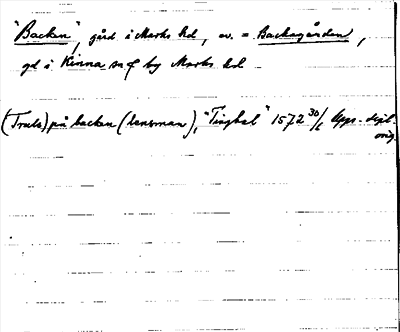 "Backen", gård i Marks hd, ev. = Backagården,
gd i Kinna sn & by Marks hd
(Truls) på backen (lensman), "Tingbal" 1572 30/6 Upps. dipl.
orig.